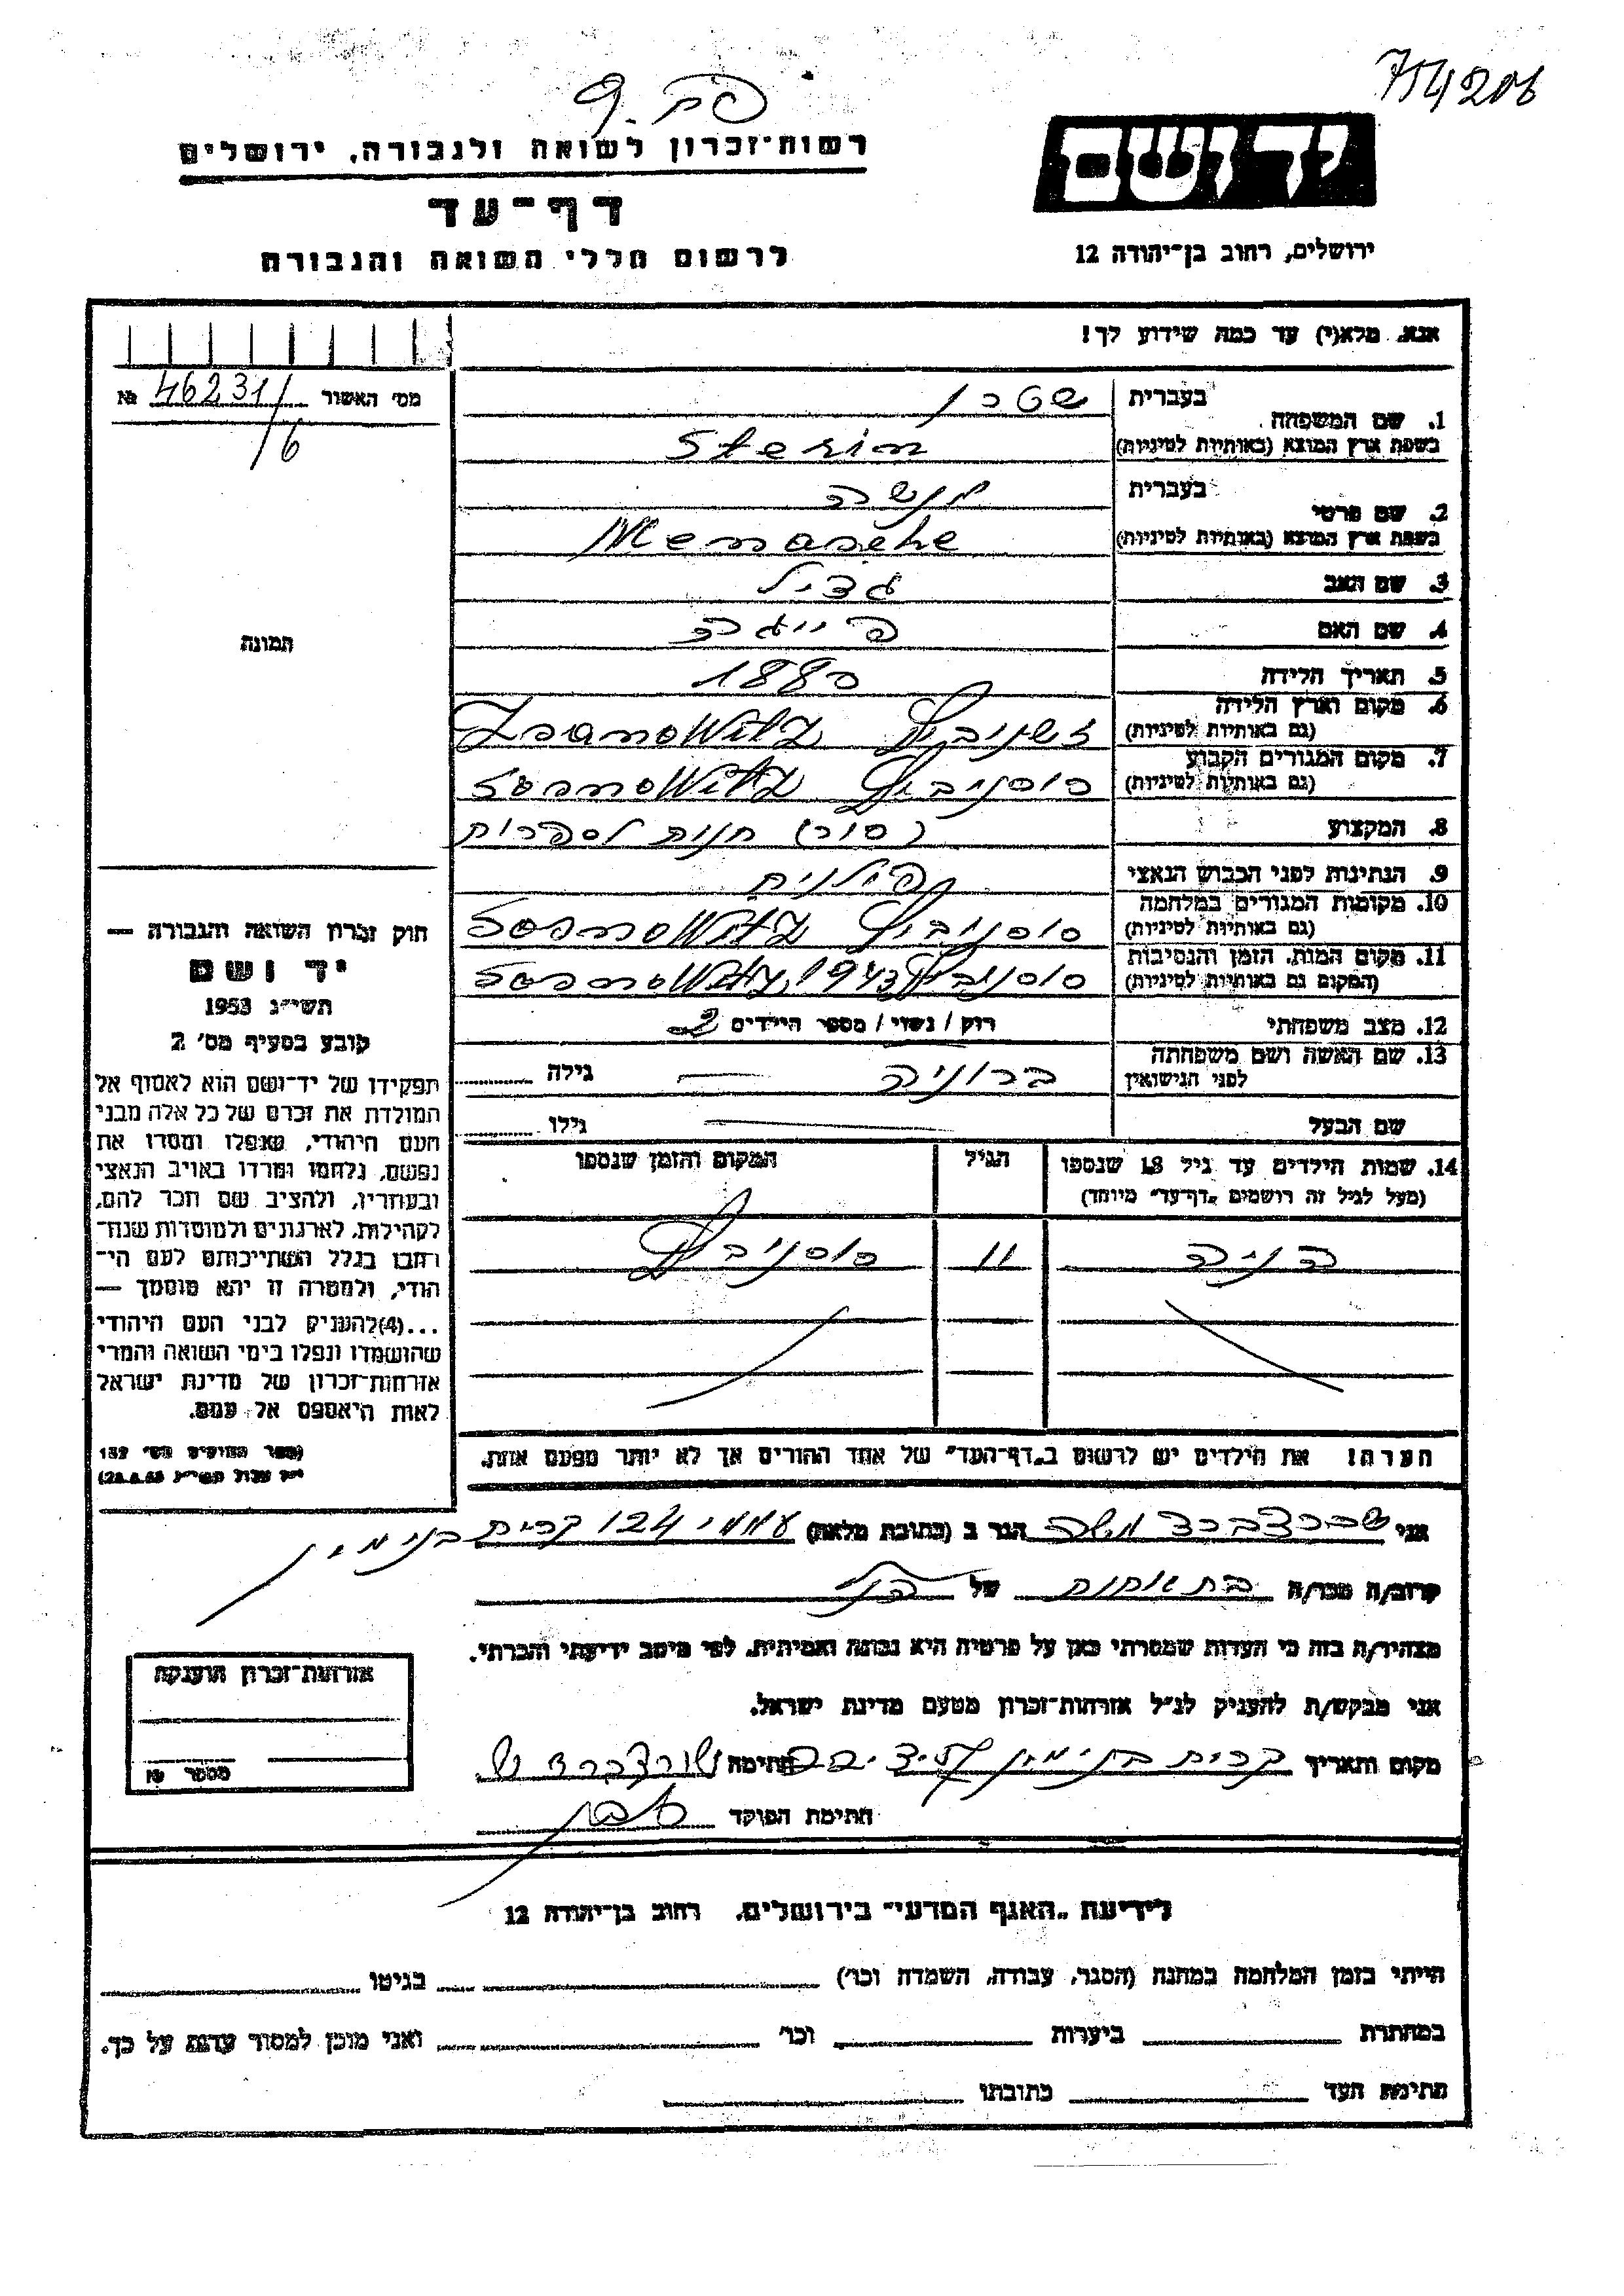 754206
יד ושם
ירושלים, רחוב בן־יהודה 12
רשות־זכרון לשואה ולגבורה, ירושלים
דף־עד
לרשום חללי השואה והגבורה
אנא, מלא(י) עד כמה שידוע לך!
מס׳ האשור 46231/ №
/6
תמונה
1. שם המשפחה
בעברית
בשפת ארץ המוצא (באותיות לטיניות) Sterin
2. שם פרטי
בעברית מנשה
בשפת ארץ המוצא (באותיות לטיניות) Menasche
3. שם האב
4. שם האם פייגה
5. תאריך הלידה 1880
6. מקום וארץ הלידה
(גם באותיות לטיניות)
7. מקום המגורים הקבוע סוסנוביץ Sosnowitz
(גם באותיות לטיניות)
8. המקצוע חנות לספרות
9. הנתינות לפני הכבוש הנאצי
10. מקומות המגורים במלחמה סוסנוביץ Sosnowitz
(גם באותיות לטיניות)
11. מקום המות, הזמן והנסיבות סוסנוביץ 1943 Sosnowitz
(המקום גם באותיות לטיניות)
12. מצב משפחתי רוק / נשוי / מספר הילדים 2
13. שם האשה ושם משפחתה ברוניה גילה
לפני הנישואין
שם הבעל גילו
14. שמות הילדים עד גיל 18 שנספו הגיל המקום והזמן שנספו
(מעל לגיל זה רושמים „דף־עד״ מיוחד)
11 סוסנוביץ
הערה! את הילדים יש לרשום ב„דף־העד״ של אחד ההורים אך לא יותר מפעם אחת.
חוק זכרון השואה והגבורה —
יד ושם
תשי״ג 1953
קובע בסעיף מס׳ 2
תפקידו של יד־ושם הוא לאסוף אל
המולדת את זכרם של כל אלה מבני
העם היהודי, שנפלו ומסרו את
נפשם, נלחמו ומרדו באויב הנאצי
ובעוזריו, ולהציב שם וזכר להם,
לקהילות, לארגונים ולמוסדות שנח־
רבו בגלל השתייכותם לעם הי־
הודי, ולמטרה זו יהא מוסמך —
...(4) להעניק לבני העם היהודי
שהושמדו ונפלו בימי השואה והמרי
אזרחות־זכרון של מדינת ישראל
לאות היאספם אל עמם.
(ספר החוקים מס׳ 132
אני הגר ב (כתובת מלאה) עממי 124 קרית בנימין
קרוב/ה מכר/ה בת אחות של
מצהיר/ה בזה כי העדות שמסרתי כאן על פרטיה היא נכונה ואמיתית, לפי מיטב ידיעתי והכרתי.
אני מבקש/ת להעניק לנ״ל אזרחות־זכרון מטעם מדינת ישראל.
מקום ותאריך קרית בנימין חתימה
חתימת הפוקד
אזרחות־זכרון הוענקה
מספר №
לידיעת „האגף המדעי״ בירושלים, רחוב בן־יהודה 12
הייתי בזמן המלחמה במחנה (הסגר, עבודה, השמדה וכו׳) בגיטו
במחתרת ביערות וכו׳ ואני מוכן למסור עדות על כך.
חתימת העד כתובתו